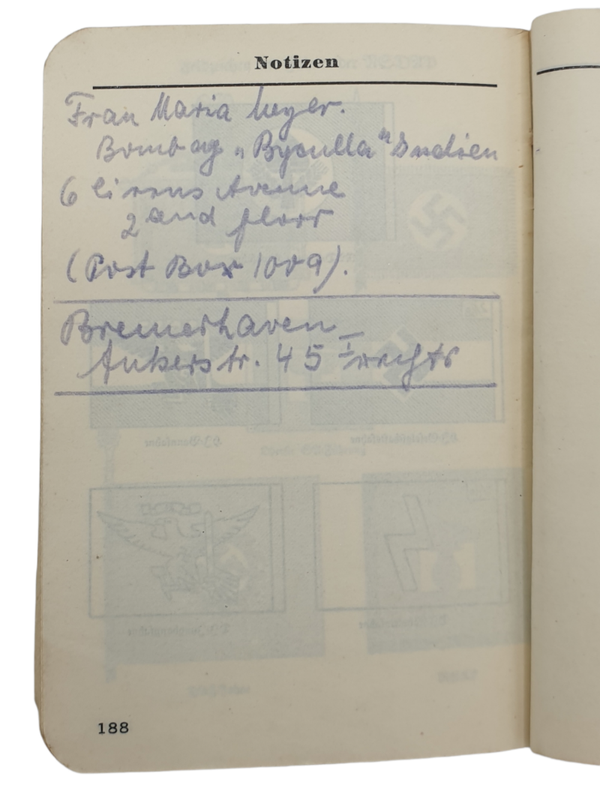 Notizen
Frau Maria Meyer.
Bombay „Byculla“ Indien
6 Avenue
2 and floor
(Post Box 1009).
Bremerhaven
Ankerstr. 45 I rechts
188